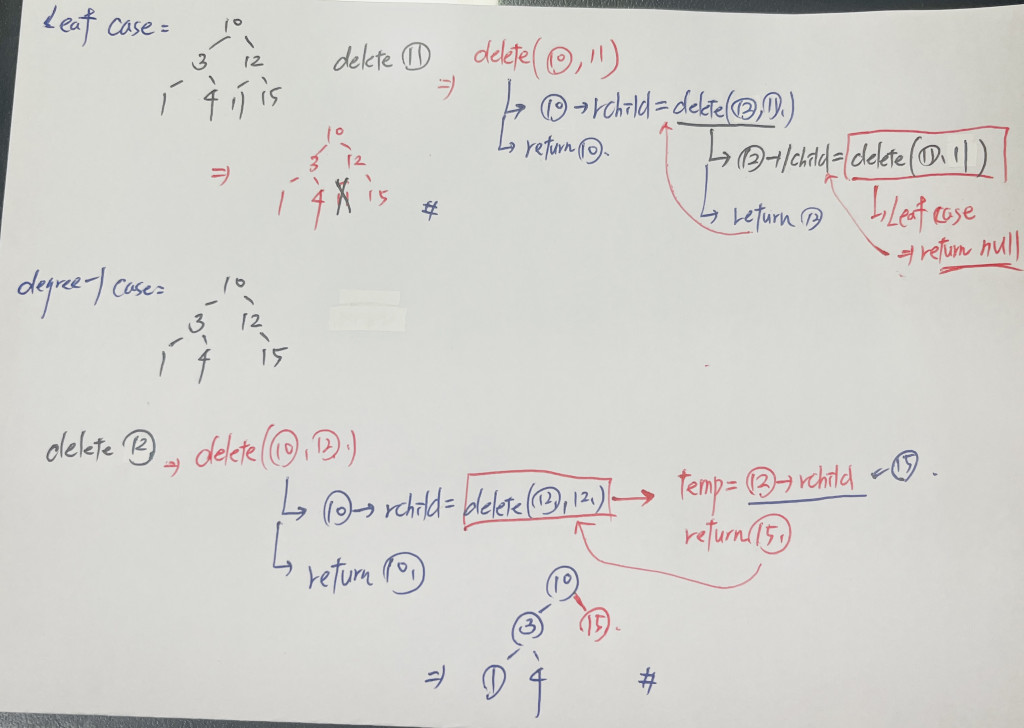 Leaf case =
10
3 12
1 4 11 15
delete ⑪ ⇒ delete(⑩, 11)
↳ ⑩→rchild = delete(⑫, 11)
↳ return ⑩.
↳ ⑫→lchild = delete(⑪, 11)
↳ return ⑫
↳ Leaf case
⇒ return null
⇒
10
3 12
1 4 15
#
degree-1 case =
10
3 12
1 4 15
delete ⑫ ⇒ delete(⑩, ⑫)
↳ ⑩→rchild = delete(⑫, 12) → temp = ⑫→rchild ← ⑮.
return ⑮
↳ return ⑩
⇒
⑩
③ ⑮.
① 4
#